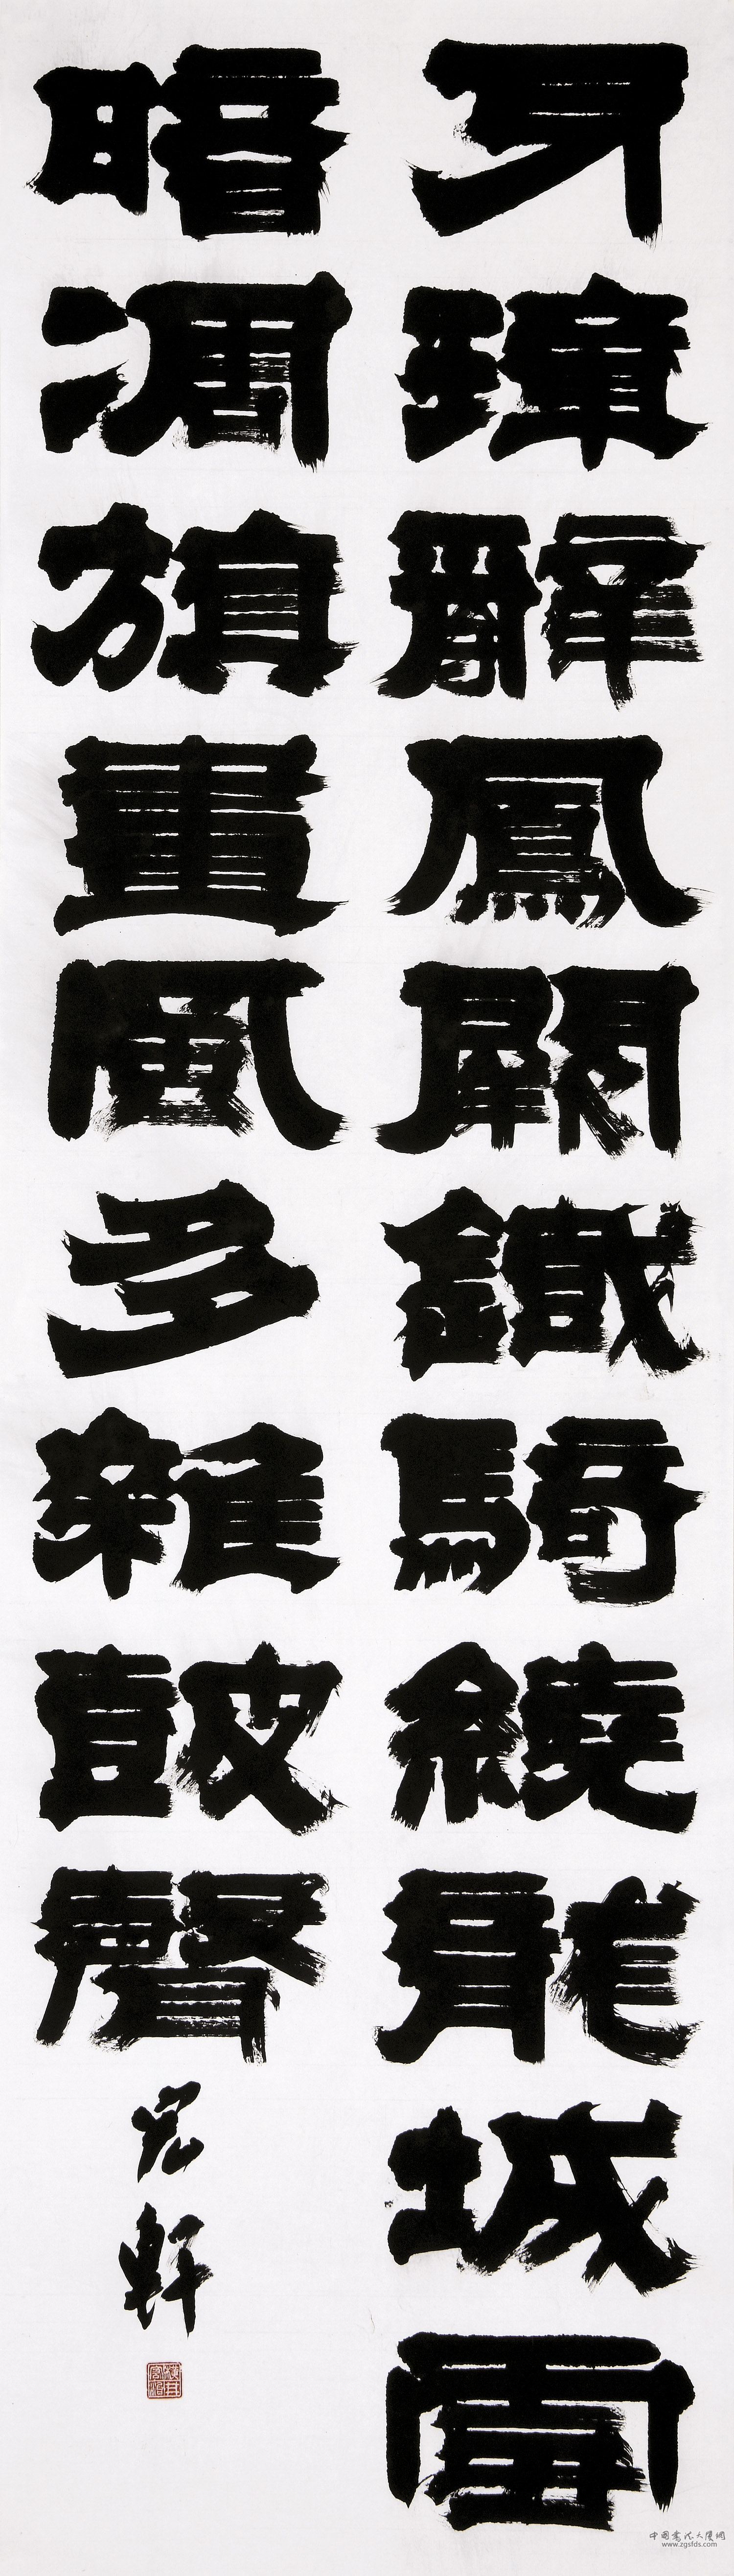 牙璋辭鳳闕鐵騎繞龍城雪
暗凋旗畫風多雜鼓聲
宏軒
中國書法大廈網
www.zgsfds.com